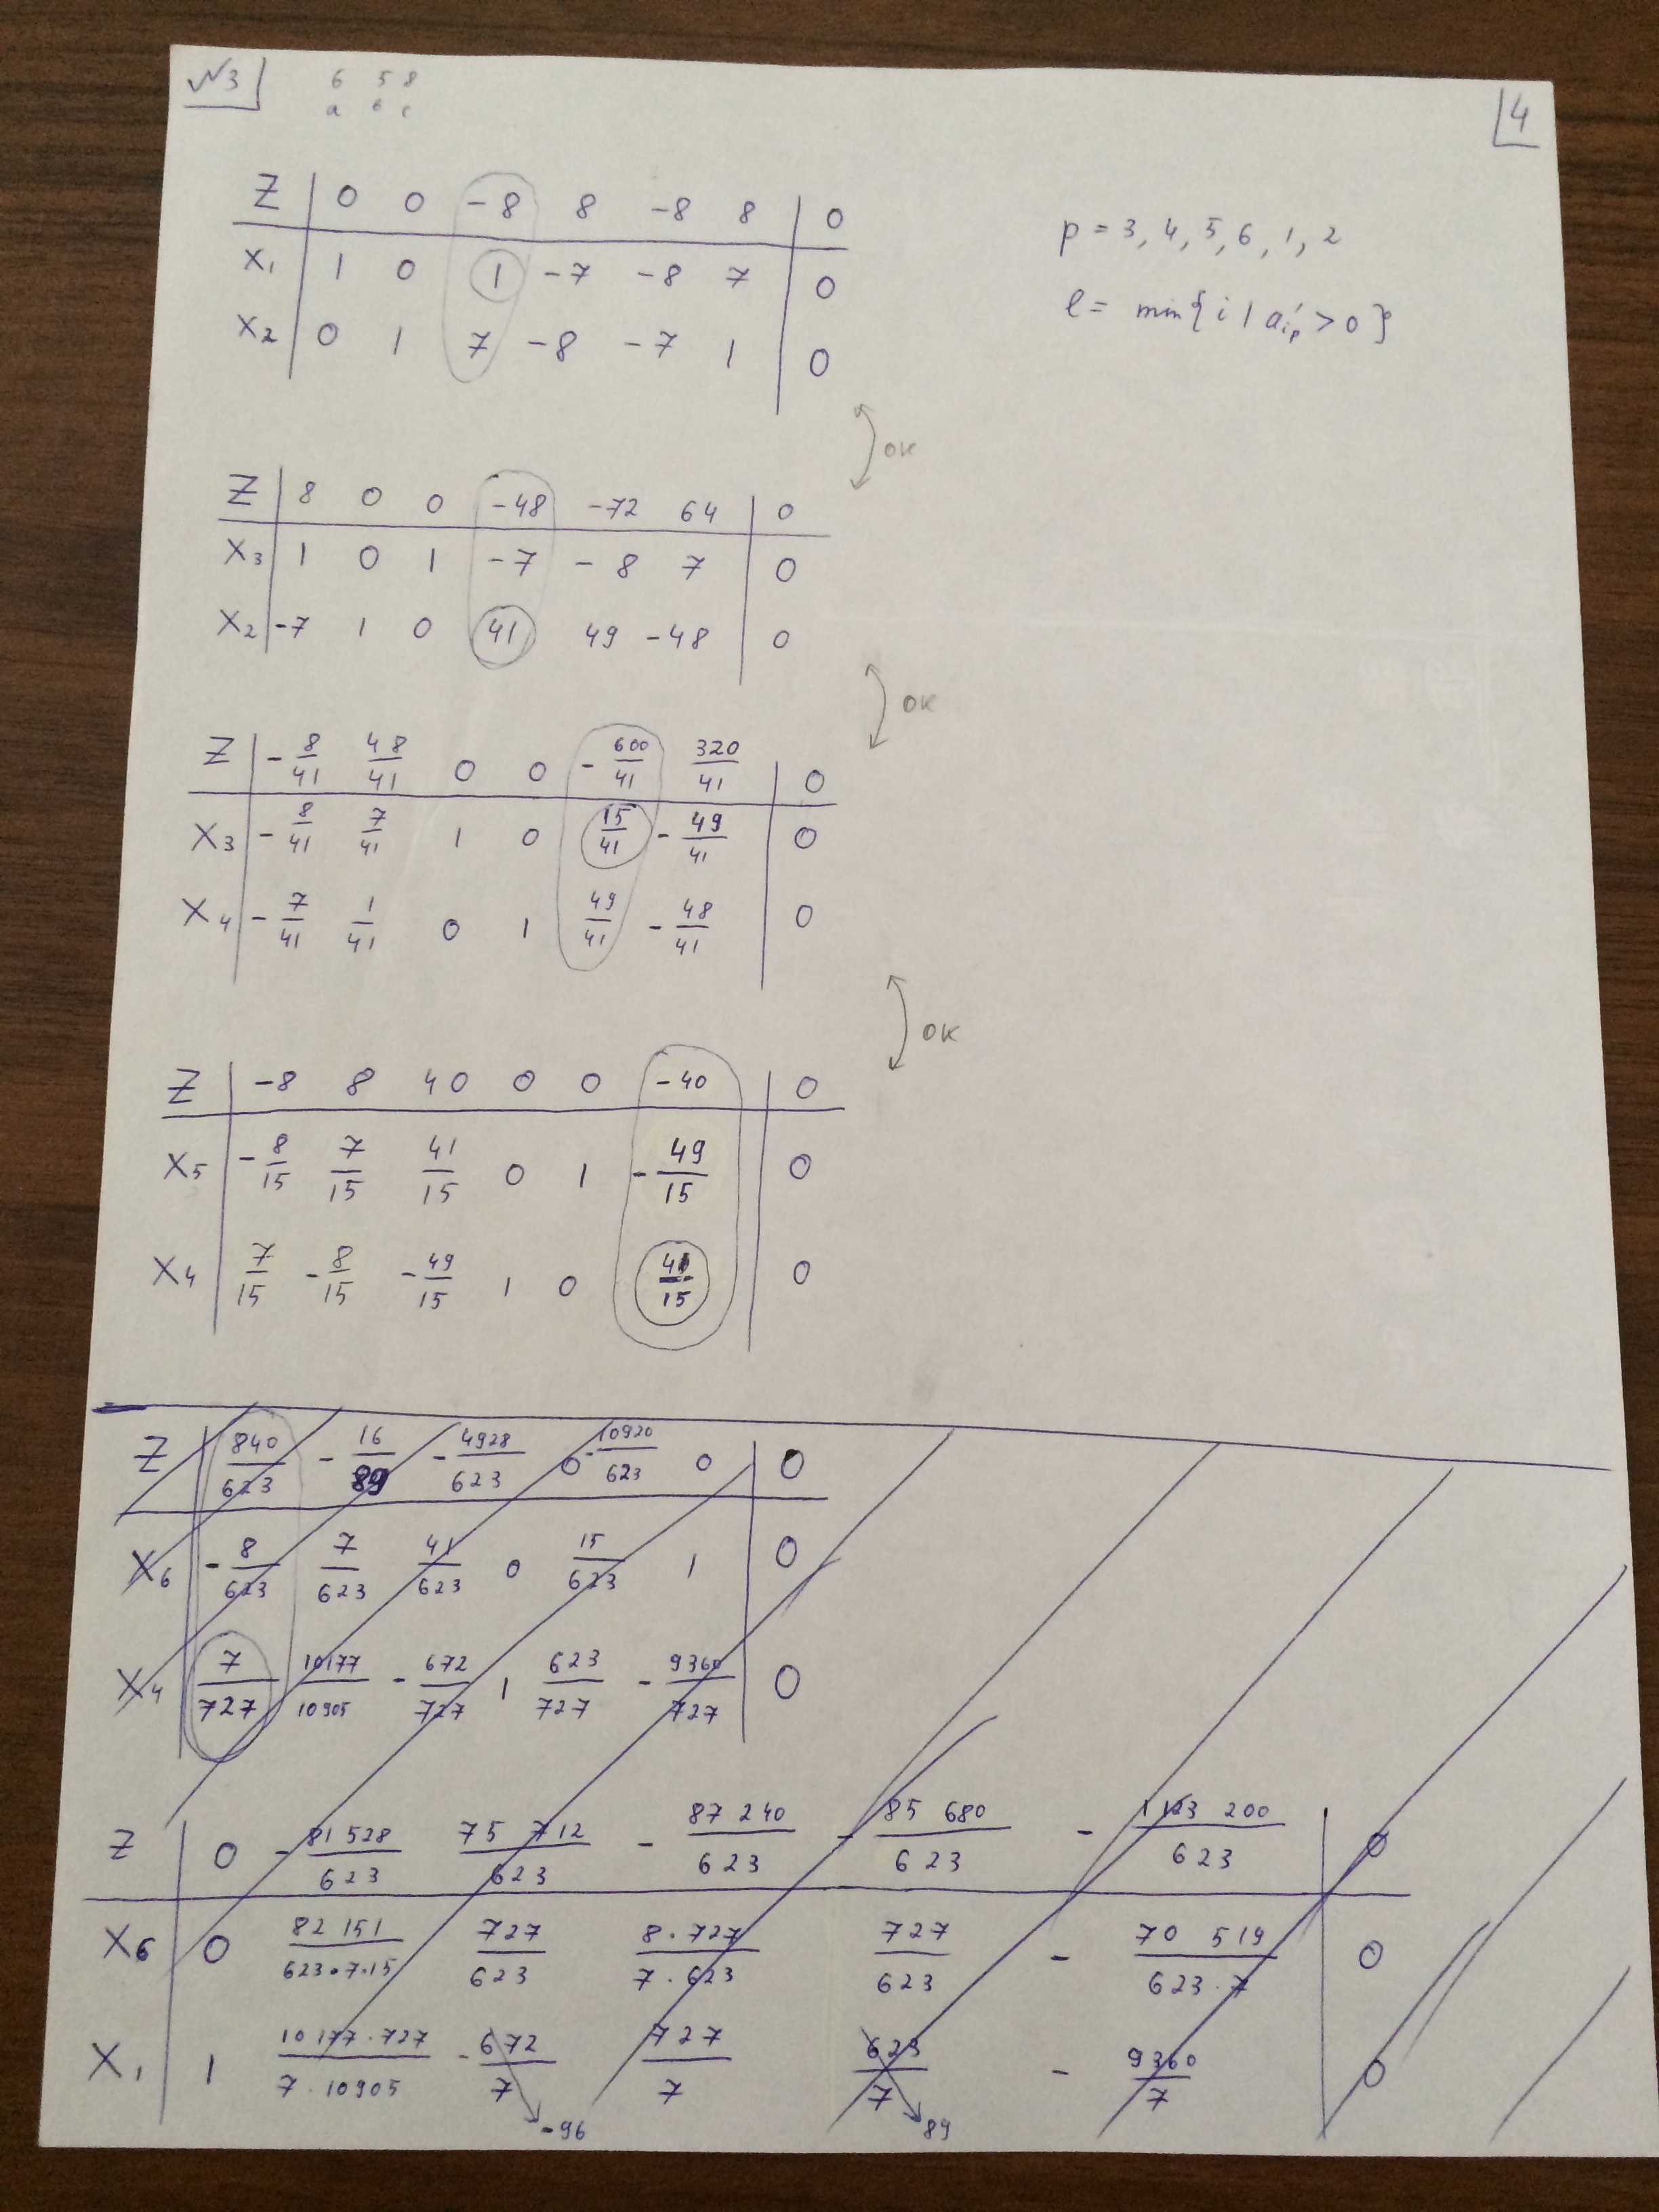 №3 6 5 8 4
a b c
Z | 0 0 -8 8 -8 8 | 0
X₁ | 1 0 1 -7 -8 7 | 0
X₂ | 0 1 7 -8 -7 1 | 0
p = 3, 4, 5, 6, 1, 2
l = min{i | a'ᵢₚ > 0}
OK
Z | 8 0 0 -48 -72 64 | 0
X₃ | 1 0 1 -7 -8 7 | 0
X₂ | -7 1 0 41 49 -48 | 0
OK
Z | -8/41 48/41 0 0 -600/41 320/41 | 0
X₃ | -8/41 7/41 1 0 15/41 -49/41 | 0
X₄ | -7/41 1/41 0 1 49/41 -48/41 | 0
OK
Z | -8 8 40 0 0 -40 | 0
X₅ | -8/15 7/15 41/15 0 1 -49/15 | 0
X₄ | 7/15 -8/15 -49/15 1 0 41/15 | 0
Z | 840/623 -16/89 -4928/623 0 -10920/623 0 | 0
X₆ | -8/623 7/623 41/623 0 15/623 1 | 0
X₄ | 7/727 10177/10905 -672/727 1 623/727 -9360/727 | 0
Z | 0 -81 528/623 75 712/623 -87 240/623 -85 680/623 -1 123 200/623 | 0
X₆ | 0 82 151/623·7·15 727/623 8·727/7·623 727/623 -70 519/623·7 | 0
X₁ | 1 10177·727/7·10905 -672/7 727/7 623/7 -9360/7 | 0
-96 89